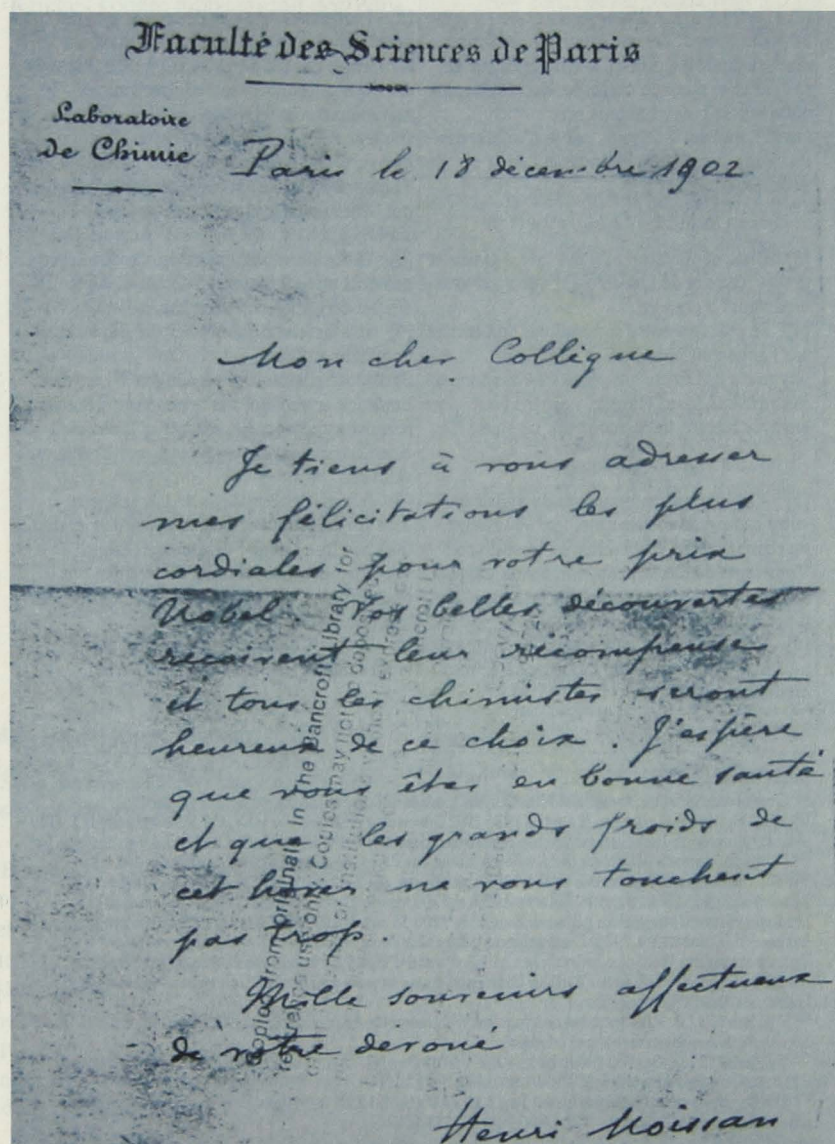 Faculté des Sciences de Paris
Laboratoire
de Chimie
Paris le 18 décembre 1902
Mon cher Collègue
Je tiens à vous adresser
mes félicitations les plus
cordiales pour votre prix
Nobel. Vos belles découvertes
reçoivent leur récompense
et tous les chimistes seront
heureux de ce choix. J'espère
que vous êtes en bonne santé
et que les grands froids de
cet hiver ne vous touchent
pas trop.
Mille souvenirs affectueux
de votre dévoué
Henri Moissan
originals in The Bancroft Library for
use only. Copies may not be deposited